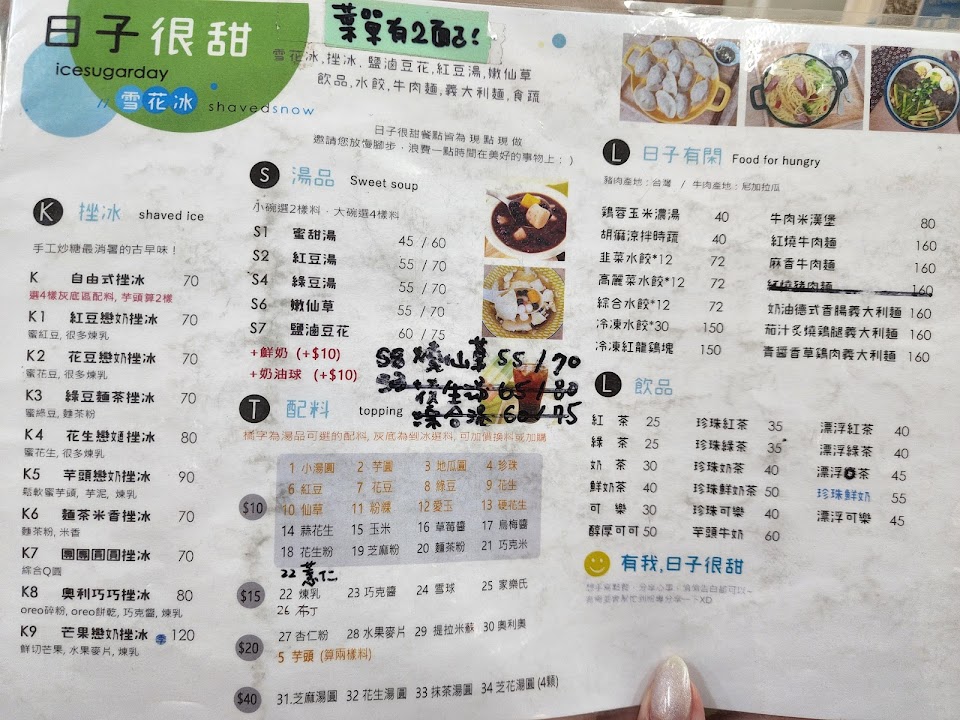 日子很甜
icesugarday
雪花冰 shavedsnow
菜單有2面ㄛ!
雪花冰,挫冰、鹽滷豆花,紅豆湯,嫩仙草
飲品,水餃,牛肉麵,義大利麵,食蔬
日子很甜餐點皆為 現 點 現 做
邀請您放慢腳步，浪費一點時間在美好的事物上：)
K 挫冰 shaved ice
手工炒糖最消暑的古早味！
K 自由式挫冰 70
選4樣灰底區配料, 芋頭算2樣
K1 紅豆戀奶挫冰 70
蜜紅豆, 很多煉乳
K2 花豆戀奶挫冰 70
蜜花豆, 很多煉乳
K3 綠豆麵茶挫冰 70
蜜綠豆, 麵茶粉
K4 花生戀奶挫冰 80
蜜花生, 很多煉乳
K5 芋頭戀奶挫冰 90
鬆軟蜜芋頭, 芋泥, 煉乳
K6 麵茶米香挫冰 70
麵茶粉, 米香
K7 團團圓圓挫冰 70
綜合Q圓
K8 奧利巧巧挫冰 80
oreo碎粉, oreo餅乾, 巧克醬, 煉乳
K9 芒果戀奶挫冰 季 120
鮮切芒果, 水果麥片, 煉乳
S 湯品 Sweet soup
小碗選2樣料，大碗選4樣料
S1 蜜甜湯 45 / 60
S2 紅豆湯 55 / 70
S4 綠豆湯 55 / 70
S6 嫩仙草 55 / 70
S7 鹽滷豆花 60 / 75
+鮮奶 (+$10)
+奶油球 (+$10)
S8 燒仙草 55/70
花生湯 65/80
綜合湯 60/75
T 配料 topping
橘字為湯品可選的配料, 灰底為剉冰選料, 可加價換料或加購
$10
1 小湯圓 2 芋圓 3 地瓜圓 4 珍珠
6 紅豆 7 花豆 8 綠豆 9 花生
10 仙草 11 粉粿 12 愛玉 13 硬花生
14 蒜花生 15 玉米 16 草莓醬 17 烏梅醬
18 花生粉 19 芝麻粉 20 麵茶粉 21 巧克米
22 薏仁
$15 22 煉乳 23 巧克醬 24 雪球 25 家樂氏
26 布丁
$20 27 杏仁粉 28 水果麥片 29 提拉米蘇 30 奧利奧
5 芋頭 (算兩樣料)
$40 31.芝麻湯圓 32 花生湯圓 33 抹茶湯圓 34 芝花湯圓 (4顆)
L 日子有閑 Food for hungry
豬肉產地：台灣 / 牛肉產地：尼加拉瓜
鷄蓉玉米濃湯 40
胡麻涼拌時蔬 40
韮菜水餃*12 72
高麗菜水餃*12 72
綜合水餃*12 72
冷凍水餃*30 150
冷凍紅龍鷄塊 150
牛肉米漢堡 80
紅燒牛肉麵 160
麻香牛肉麵 160
紅燒豬肉麵 160
奶油德式香腸義大利麵 160
茄汁炙燒鷄腿義大利麵 160
青醬香草鷄肉義大利麵 160
L 飲品
紅 茶 25
綠 茶 25
奶 茶 30
鮮奶茶 40
可 樂 30
醇厚可可 50
珍珠紅茶 35
珍珠綠茶 35
珍珠奶茶 40
珍珠鮮奶茶 50
珍珠可樂 40
芋頭牛奶 60
漂浮紅茶 40
漂浮綠茶 40
漂浮 茶 45
珍珠鮮奶 55
漂浮可樂 45
有我,日子很甜